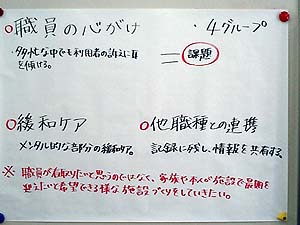 ○職員の心がけ ・4グループ
・多忙な中でも利用者の訴えに耳
を傾ける。
= 課題
○緩和ケア ○他職種との連携
メンタル的な部分の緩和ケア。 記録に残し、情報を共有する
※ 職員が看取りたいと思うのではなく、家族や本人が施設で最期を
迎えたいと希望できる様な施設づくりをしていきたい。